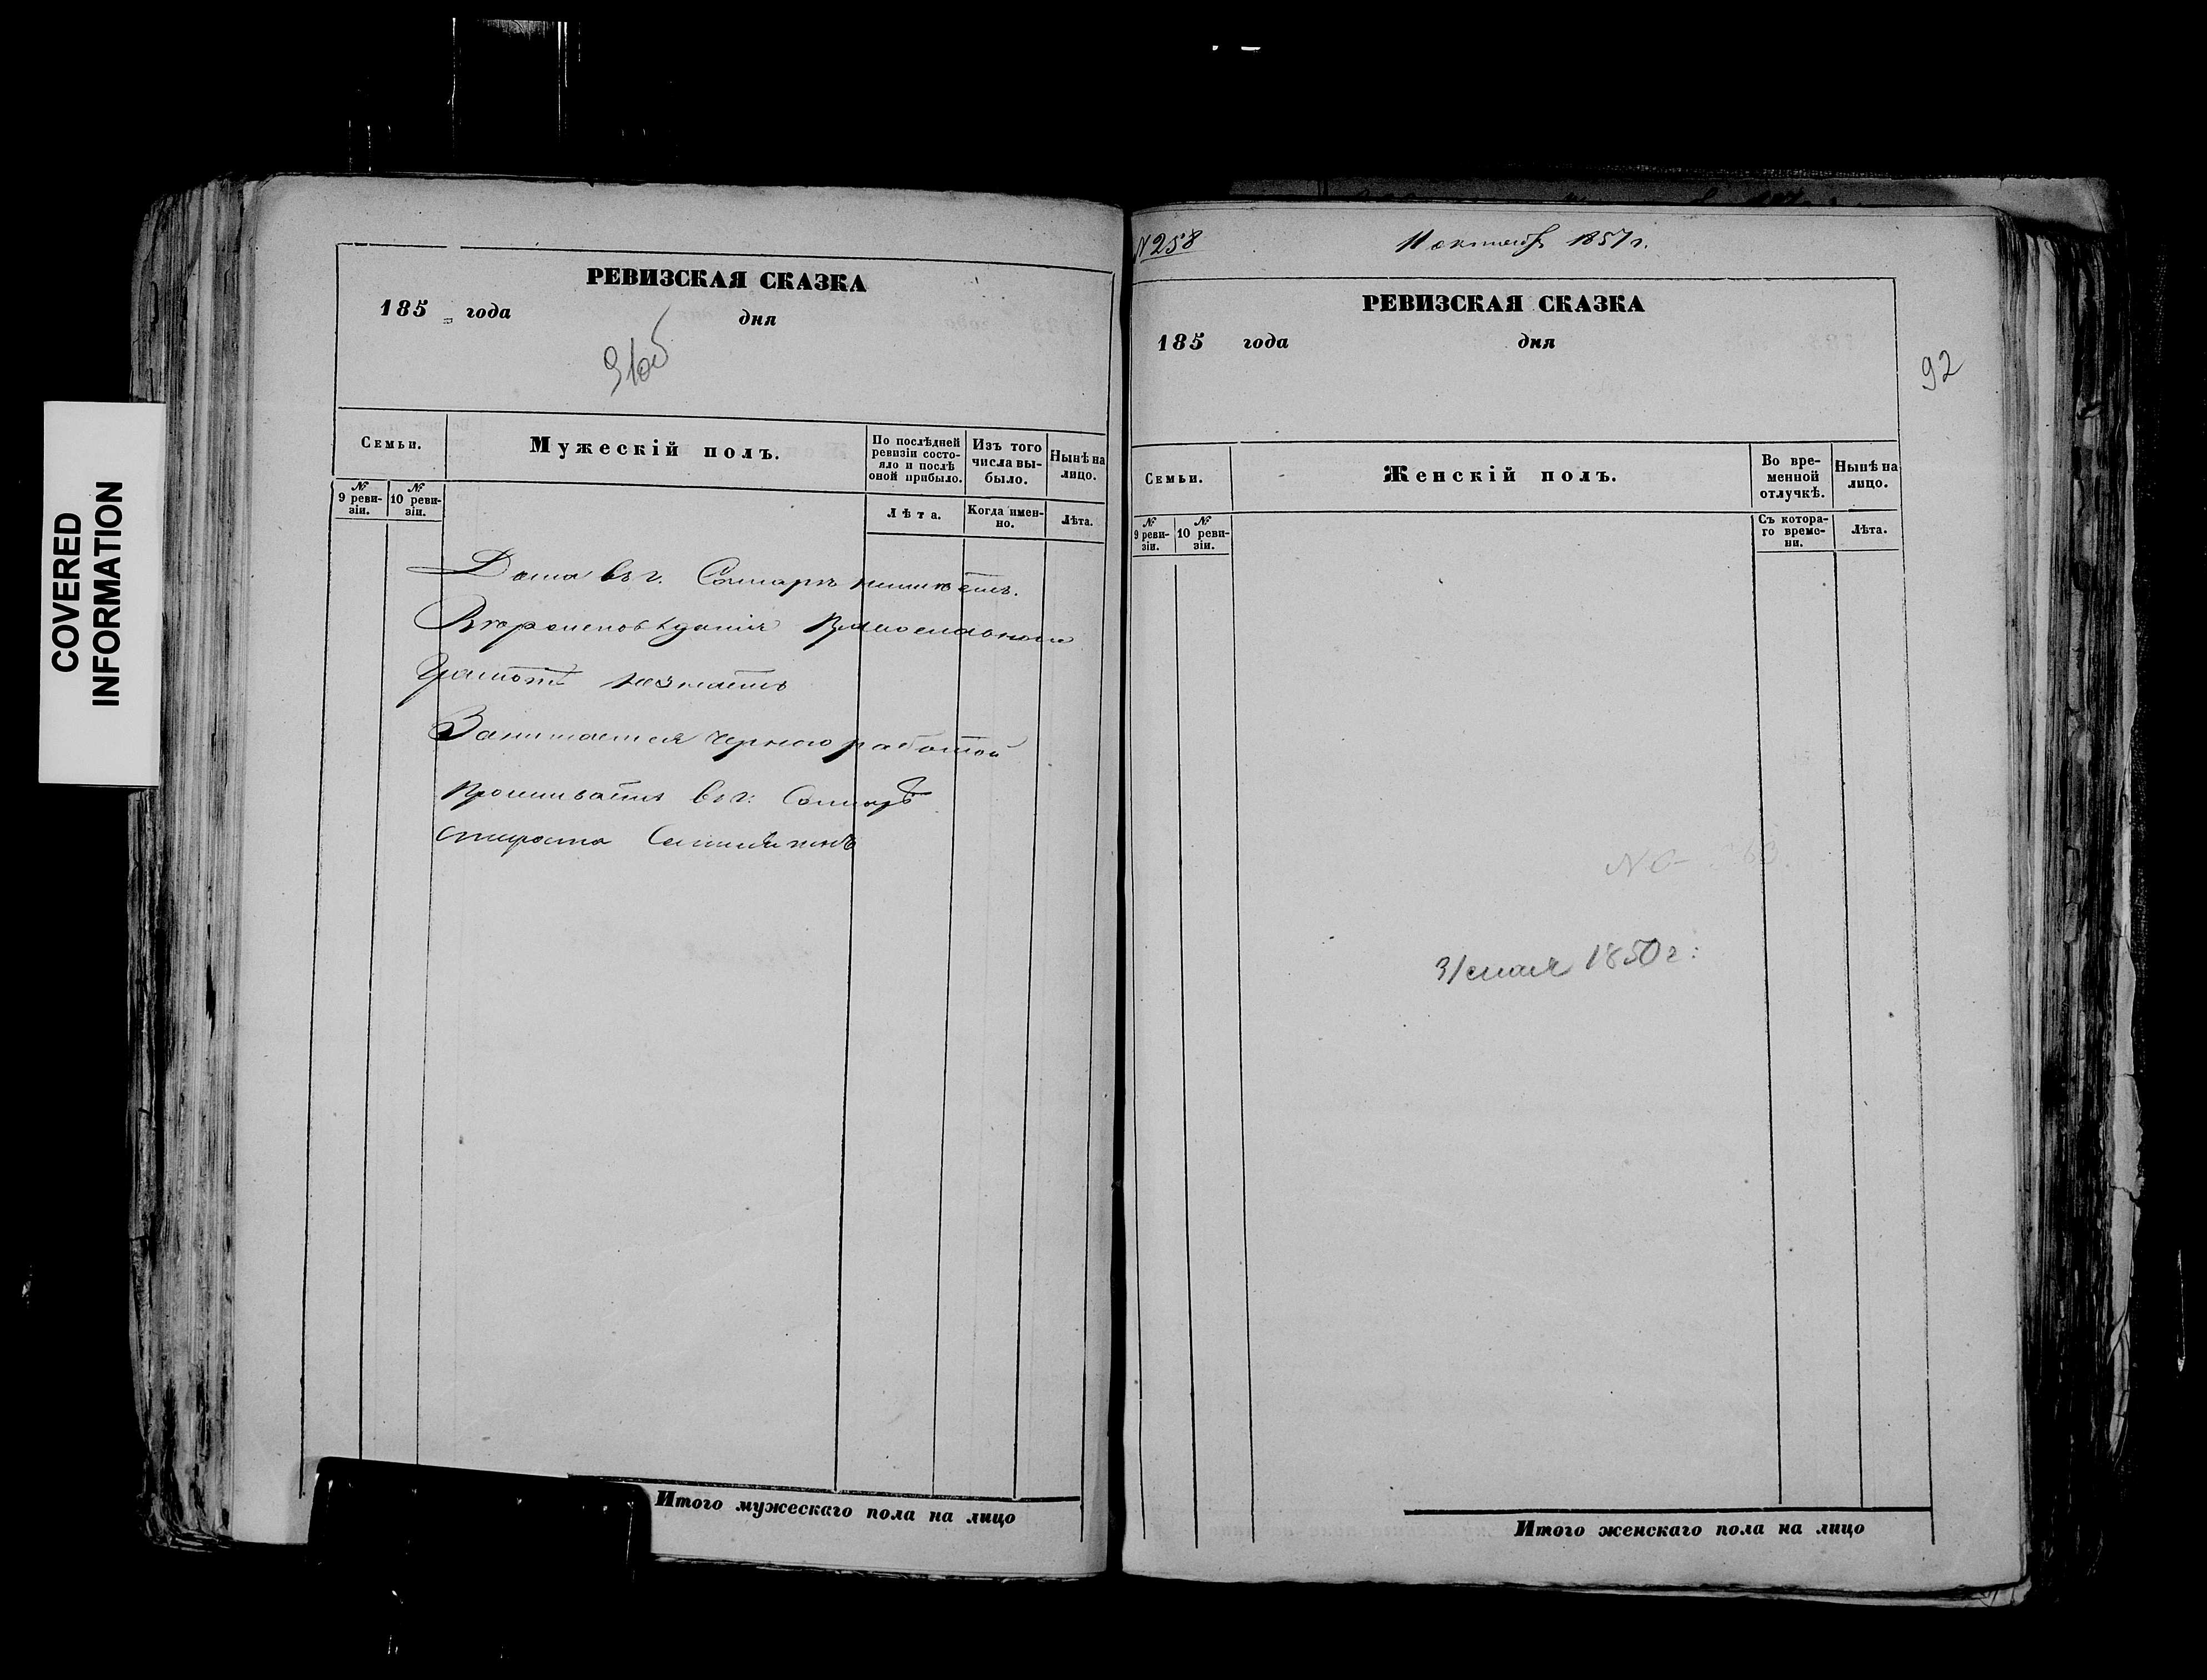 COVERED
INFORMATION
РЕВИЗСКАЯ СКАЗКА
185 года дня
91об
Семьи.
Мужескій полъ.
По послѣдней
ревизіи состо-
яло и послѣ
оной прибыло.
Изъ того
числа вы-
было.
Нынѣ на
лицо.
№
9 реви-
зіи.
№
10 реви-
зіи.
Лѣта.
Когда имен-
но.
Лѣта.
Дома въ г. Самарѣ неимѣетъ.
Вѣроисповѣданія Православнаго
Грамотѣ незнаетъ
Занимается черною работой
Проживаетъ въ г: Самарѣ
Староста
Итого мужескаго пола на лицо
N 258
11 октября 1857 г.
РЕВИЗСКАЯ СКАЗКА
185 года дня
92
Семьи.
Женскій полъ.
Во вре-
менной
отлучкѣ.
Нынѣ на
лицо.
№
9 реви-
зіи.
№
10 реви-
зіи.
Съ котора-
го време-
ни.
Лѣта.
31 мая 1850 г:
Итого женскаго пола на лицо